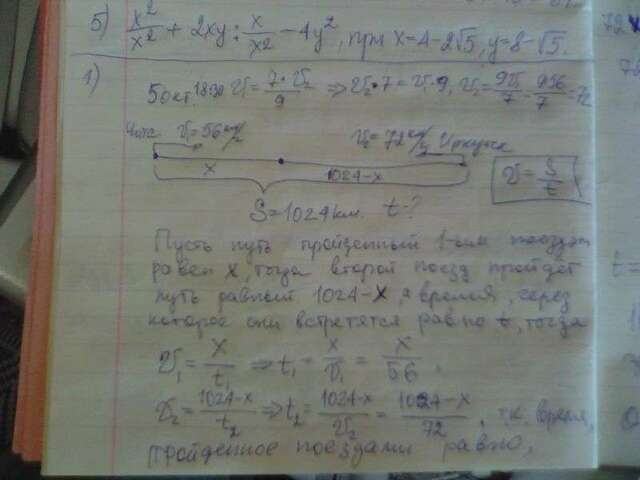 5) x²/x² + 2xy : x/x² - 4y², при x=4-2√5, y=8-√5.
1)
5 окт 18:30 v₁ = 7·v₂/9 ⇒ v₂·7 = v₁·9, v₂ = 9v₁/7 = 9·56/7 = 72
Чита v₁=56 км/ч v₂=72 км/ч Иркутск
x 1024-x v = S/t
S=1024 км. t-?
Пусть путь пройденный 1-ым поездом
равен x, тогда второй поезд пройдет
путь равный 1024-x, а время, через
которое они встретятся равно t, тогда
v₁ = x/t₁ ⇒ t₁ = x/v₁ = x/56,
v₂ = 1024-x/t₂ ⇒ t₂ = 1024-x/v₂ = 1024-x/72, т.к. время,
пройденное поездами равно,
72
t=